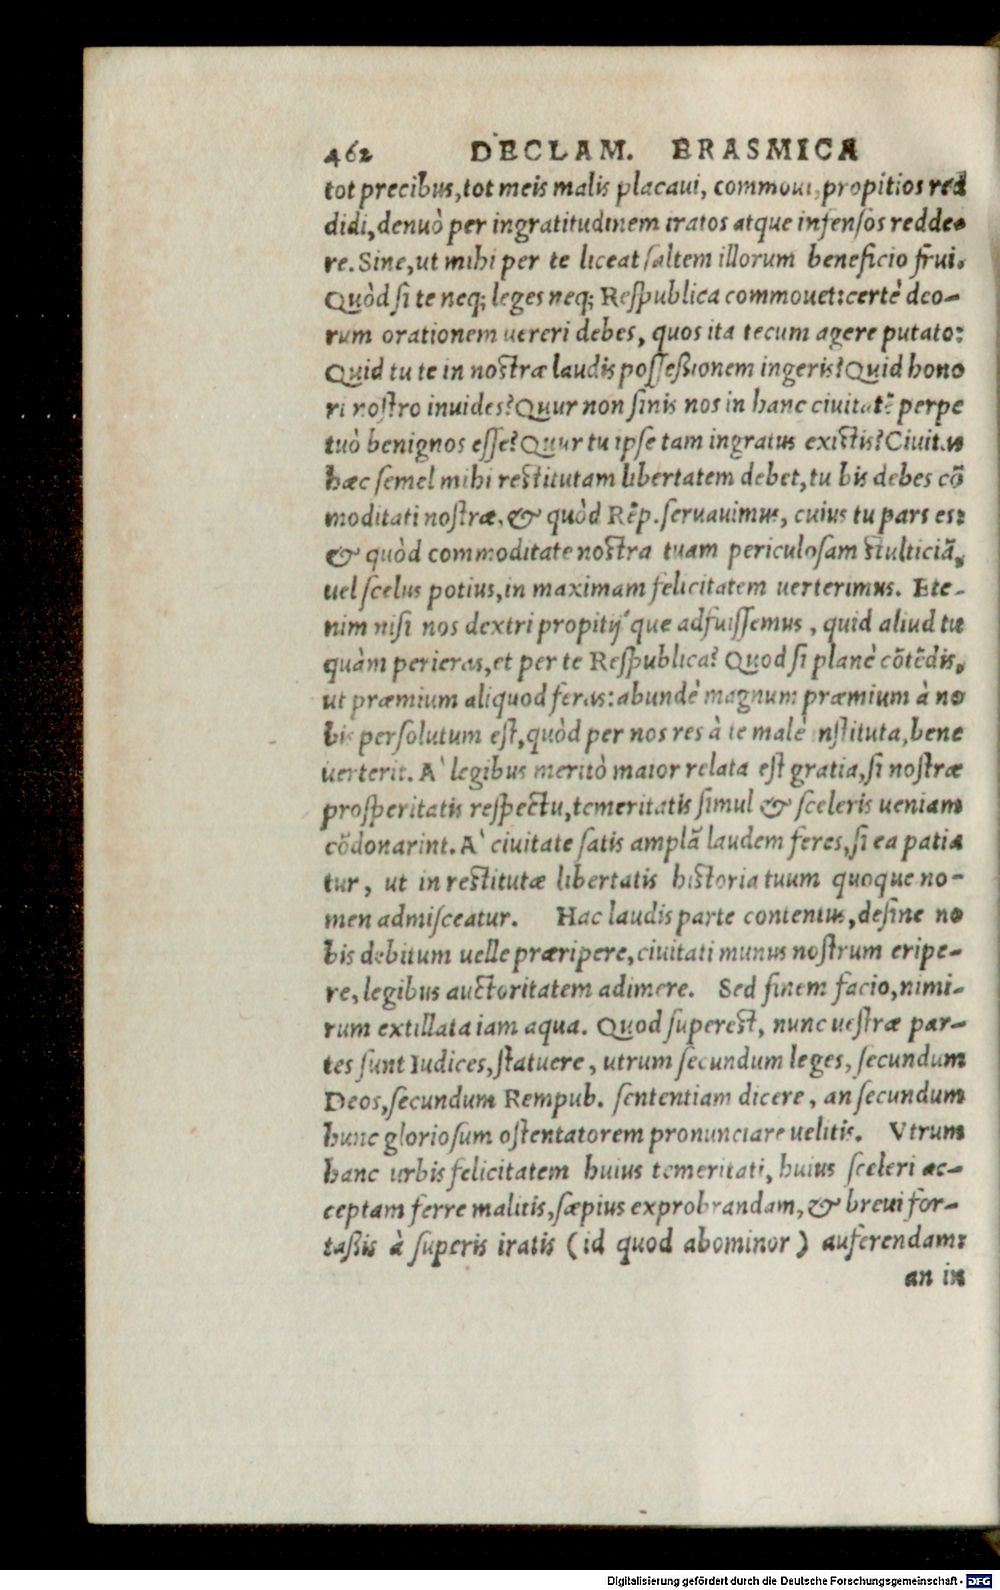 462 DECLAM. ERASMICA
tot precibus, tot meis malis placaui, commoui, propitios red
didi, denuò per ingratitudinem iratos atque infensos redde-
re. Sine, ut mihi per te liceat saltem illorum beneficio frui.
Quòd si te neq; leges neq; Respublica commouet: certè deo-
rum orationem uereri debes, quos ita tecum agere putato:
Quid tu te in nostræ laudis possessionem ingeris? Quid hono
ri nostro inuides? Quur non sinis nos in hanc ciuitatē perpe
tuò benignos esse? Quur tu ipse tam ingratus existis? Ciuitas
hæc semel mihi restitutam libertatem debet, tu bis debes cō
moditati nostræ, & quòd Rēp. seruauimus, cuius tu pars es:
& quòd commoditate nostra tuam periculosam stulticiā,
uel scelus potius, in maximam felicitatem uerterimus. Ete-
nim nisi nos dextri propitij´que adfuissemus, quid aliud tu
quàm perieras, et per te Respublica? Quod si planè cōtēdis,
ut præmium aliquod feras: abundè magnum præmium à no
bis persolutum est, quòd per nos res à te malè instituta, bene
uerterit. A` legibus meritò maior relata est gratia, si nostræ
prosperitatis respectu, temeritatis simul & sceleris ueniam
cōdonarint. A` ciuitate satis amplā laudem feres, si ea patia
tur, ut in restitutæ libertatis historia tuum quoque no-
men admisceatur. Hac laudis parte contentus, desine no
bis debitum uelle præripere, ciuitati munus nostrum eripe-
re, legibus auctoritatem adimere. Sed finem facio, nimi-
rum extillata iam aqua. Quod superest, nunc uestræ par-
tes sunt Iudices, statuere, utrum secundum leges, secundum
Deos, secundum Rempub. sententiam dicere, an secundum
hunc gloriosum ostentatorem pronunciare uelitis. Vtrum
hanc urbis felicitatem huius temeritati, huius sceleri ac-
ceptam ferre malitis, sæpius exprobrandam, & breui for-
taßis à superis iratis (id quod abominor) auferendam:
an in
Digitalisierung gefördert durch die Deutsche Forschungsgemeinschaft - DFG